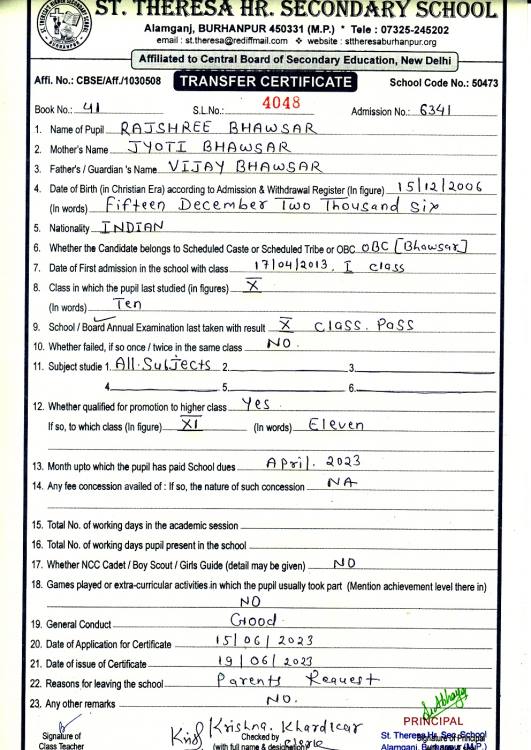 ST. THERESA HR. SECONDARY SCHOOL
Alamganj, BURHANPUR 450331 (M.P.) * Tele : 07325-245202
email : st.theresa@rediffmail.com ❖ website : sttheresaburhanpur.org
Affiliated to Central Board of Secondary Education, New Delhi
Affi. No.: CBSE/Aff./1030508 TRANSFER CERTIFICATE School Code No.: 50473
Book No.: 41 S.L.No.: 4048 Admission No.: 6341
1. Name of Pupil RAJSHREE BHAWSAR
2. Mother's Name JYOTI BHAWSAR
3. Father's / Guardian 's Name VIJAY BHAWSAR
4. Date of Birth (in Christian Era) according to Admission & Withdrawal Register (In figure) 15/12/2006
(In words) Fifteen December Two Thousand Six
5. Nationality INDIAN
6. Whether the Candidate belongs to Scheduled Caste or Scheduled Tribe or OBC OBC [Bhawsar]
7. Date of First admission in the school with class 17/04/2013, I class
8. Class in which the pupil last studied (in figures) X
(In words) Ten
9. School / Board Annual Examination last taken with result X class. Pass
10. Whether failed, if so once / twice in the same class NO.
11. Subject studie 1. All. Subjects 2. 3.
4. 5. 6.
12. Whether qualified for promotion to higher class Yes.
If so, to which class (In figure) XI (In words) Eleven
13. Month upto which the pupil has paid School dues April. 2023
14. Any fee concession availed of : If so, the nature of such concession NA
15. Total No. of working days in the academic session
16. Total No. of working days pupil present in the school
17. Whether NCC Cadet / Boy Scout / Girls Guide (detail may be given) NO
18. Games played or extra-curricular activities in which the pupil usually took part (Mention achievement level there in)
NO
19. General Conduct Good.
20. Date of Application for Certificate 15/06/2023
21. Date of issue of Certificate 19/06/2023
22. Reasons for leaving the school Parents Request
23. Any other remarks NO.
PRINCIPAL
Krishna. Khardikar
Signature of Checked by Clerk St. Theresa Hr. Sec. School
Class Teacher (with full name & designation) Signature of Principal
Alamganj, Burhanpur (M.P.)